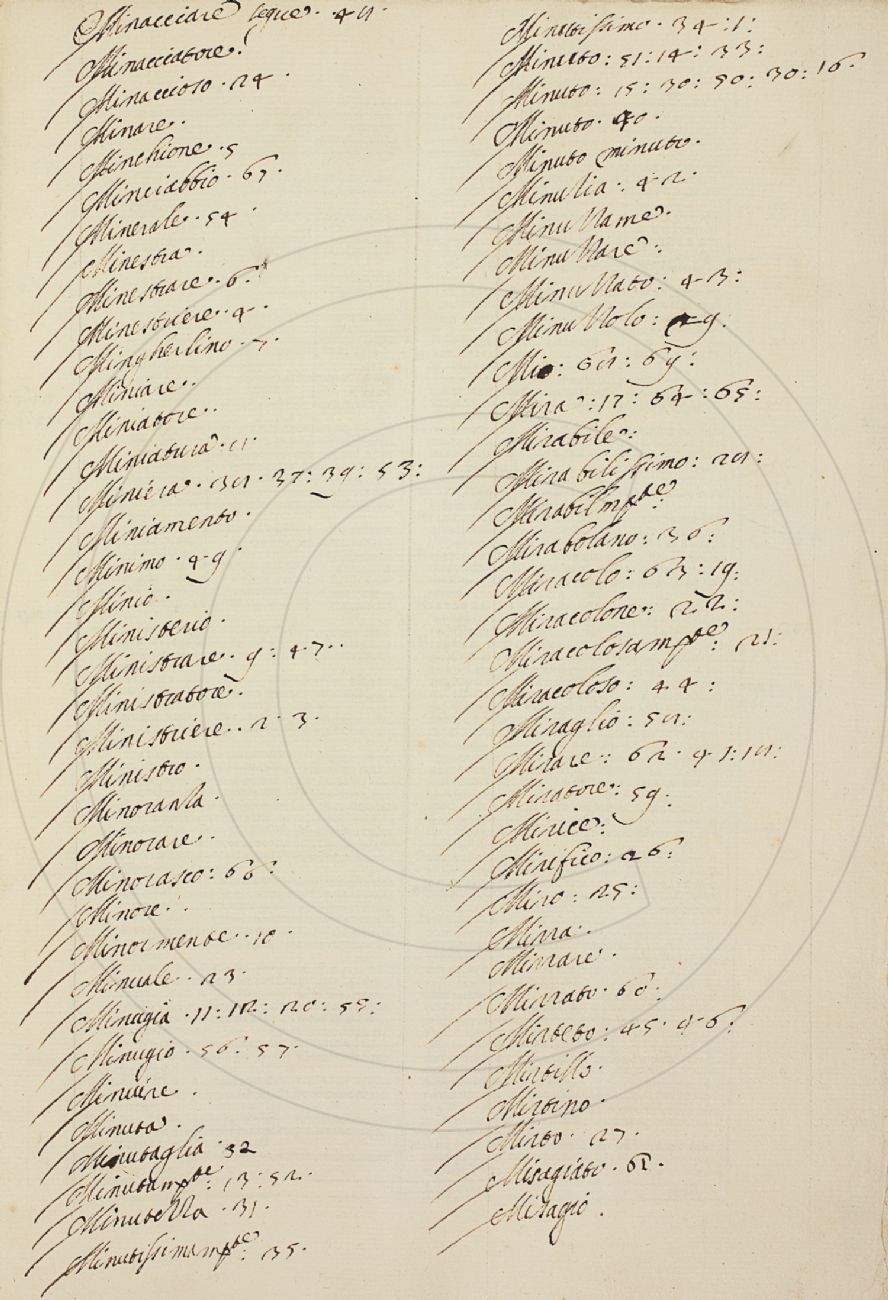 Minacciare segue · 48 ·
Minacciatore ·
Minaccioso · 24 ·
Minare ·
Minchione · 5
Minciabbio · 67 ·
Minerale · 54 ·
Minestra ·
Minestrare · 6 ·
Minestriere · 4 ·
Mingherlino · 7 ·
Miniare ·
Miniatore ·
Miniatura · 8 ·
Miniera · 38 · 37 : 39 : 53 :
Miniamento ·
Minimo · 49 ·
Minio ·
Ministerio ·
Ministrare · 9 : 47 ·
Ministratore ·
Ministriere · 2 · 3 ·
Ministro ·
Minoranza ·
Minorare ·
Minorasco : 66 :
Minore ·
Minormente · 10 ·
Minuale · 23 ·
Minugia · 11 : 12 : 20 : 55 :
Minugio · 56 · 57 ·
Minuire ·
Minuta ·
Minutaglia · 32
Minutamte : 13 : 52 ·
Minutezza · 31 ·
Minutissimamte : 35 ·
Minutissimo · 34 : 1 :
Minuto : 51 : 14 : 33 :
Minuto : 15 : 30 : 50 : 30 : 16
Minuto · 40 ·
Minuto minuto ·
Minuzia · 42 ·
Minuzzame ·
Minuzzare :
Minuzzato : 43 :
Minuzzolo : 29 :
Mio : 68 : 69 :
Mira : 17 : 64 : 65 :
Mirabile :
Mirabilissimo : 28 :
Mirabilmte :
Mirabolano : 36 :
Miracolo : 63 : 19 :
Miracolone : 22 :
Miracolosamte : 21 :
Miracoloso : 44 :
Miraglio : 58 :
Mirare : 62 · 41 : 18 :
Miratore : 59 :
Mirice :
Mirifico : 26 :
Miro : 25 :
Mirra ·
Mirrare ·
Mirrato · 60 :
Mirteto : 45 · 46 :
Mirtillo ·
Mirtino ·
Mirto · 27 ·
Misagiato · 61 ·
Misagio ·